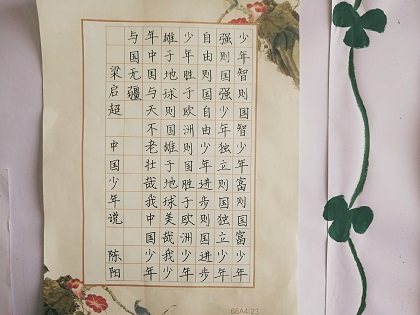 少年智则国智少年富则国富少年
强则国强少年独立则国独立少年
自由则国自由少年进步则国进步
少年胜于欧洲则国胜于欧洲少年
雄于地球则国雄于地球美哉我少
年中国与天不老壮哉我中国少年
与国无疆
梁启超 中国少年说 陈阳
68A4-23